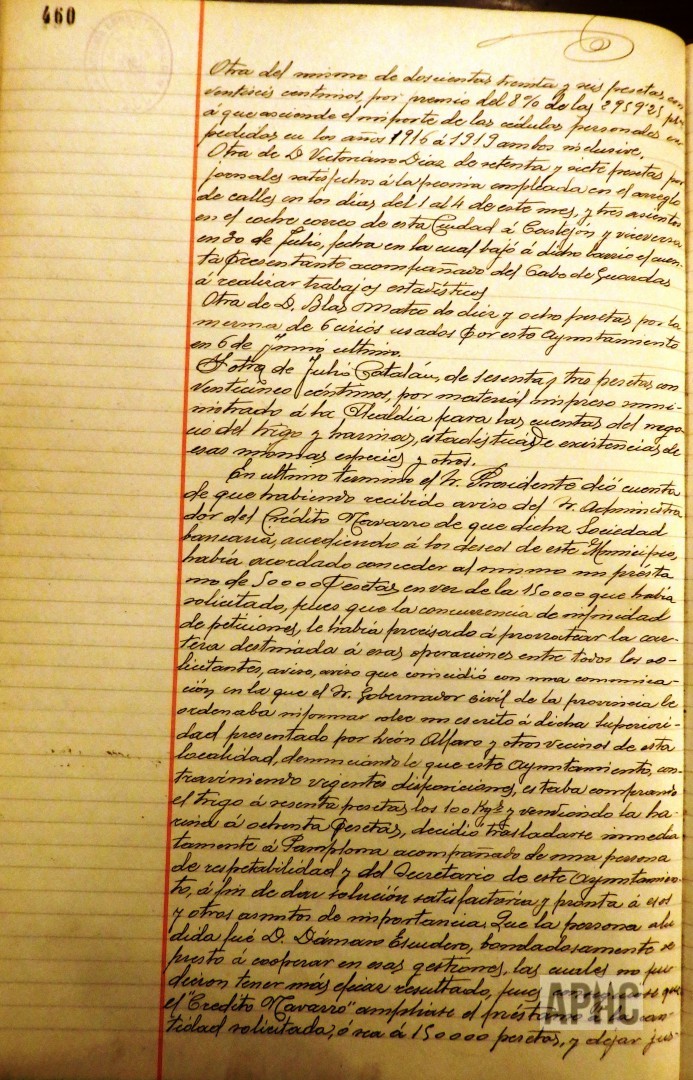 460
Otra del mismo de doscientas treinta y seis pesetas, con
veintiseis centimos, por premio del 8% de las 2959'25 pts
á que asciende el importe de las cédulas personales ex
pedidas en los años 1916 á 1919 ambos inclusive.
Otra de D. Victoriano Diaz de setenta y siete pesetas por
jornales satisfechos á la peonia empleada en el arreglo
de calles en los dias del 1 al 4 de este mes, y tres asientos
en el coche correo de esta Ciudad á Castejón y viceversa
en 30 de Julio, fecha en la cual bajó á dicho barrio el cuen
ta presentante acompañado del Cabo de Guardas
á realizar trabajos estadísticos
Otra de D. Blas Mateo de diez y ocho pesetas por la
merma de 6 cirios usados por este Ayuntamiento
en 6 de Junio ultimo.
Y otra de Julio Catalán, de sesenta y tres pesetas con
veinticinco céntimos, por material impreso sumi
nistrado á la Alcaldia para las cuentas del nego
cio del trigo y harinas, estadísticas de existencias de
esas mismas especies y otros.
En ultimo termino el Sr. Presidente dió cuenta
de que habiendo recibido aviso del Sr. Administra
dor del Crédito Navarro de que dicha Sociedad
bancaria, accediendo á los deseos de este Municipio,
había acordado conceder al mismo un présta
mo de 50000 Pesetas en vez de la 150000 que había
solicitado, pues que la concurrencia de infinidad
de peticiones, le había precisado á prorratear la car
tera destinada á esas operaciones entre todos los so-
licitantes, aviso, aviso que coincidió con una comunica-
ción en la que el Sr. Gobernador civil de la provincia le
ordenaba informar sobre un escrito á dicha superiori-
dad presentado por León Alfaro y otros vecinos de esta
localidad, denunciándole que este Ayuntamiento, con-
traviniendo vigentes disposiciones, estaba comprando
el trigo á sesenta pesetas los 100 Kgs y vendiendo la ha-
rina á ochenta pesetas, decidió trasladarse inmedia
tamente á Pamplona acompañado de una persona
de respetabilidad y del Secretario de este Ayuntamien-
to, á fin de dar solución satisfactoria y pronta á esos
y otros asuntos de importancia. Que la persona alu
dida fué D. Dámaso Escudero, bondadosamente se
prestó á cooperar en esas gestiones, las cuales no pu
dieron tener más eficaz resultado, pues se que
el "Credito Navarro" ampliase el préstamo can-
tidad solicitada, ó sea á 150000 pesetas, y dejar jus-
APHC